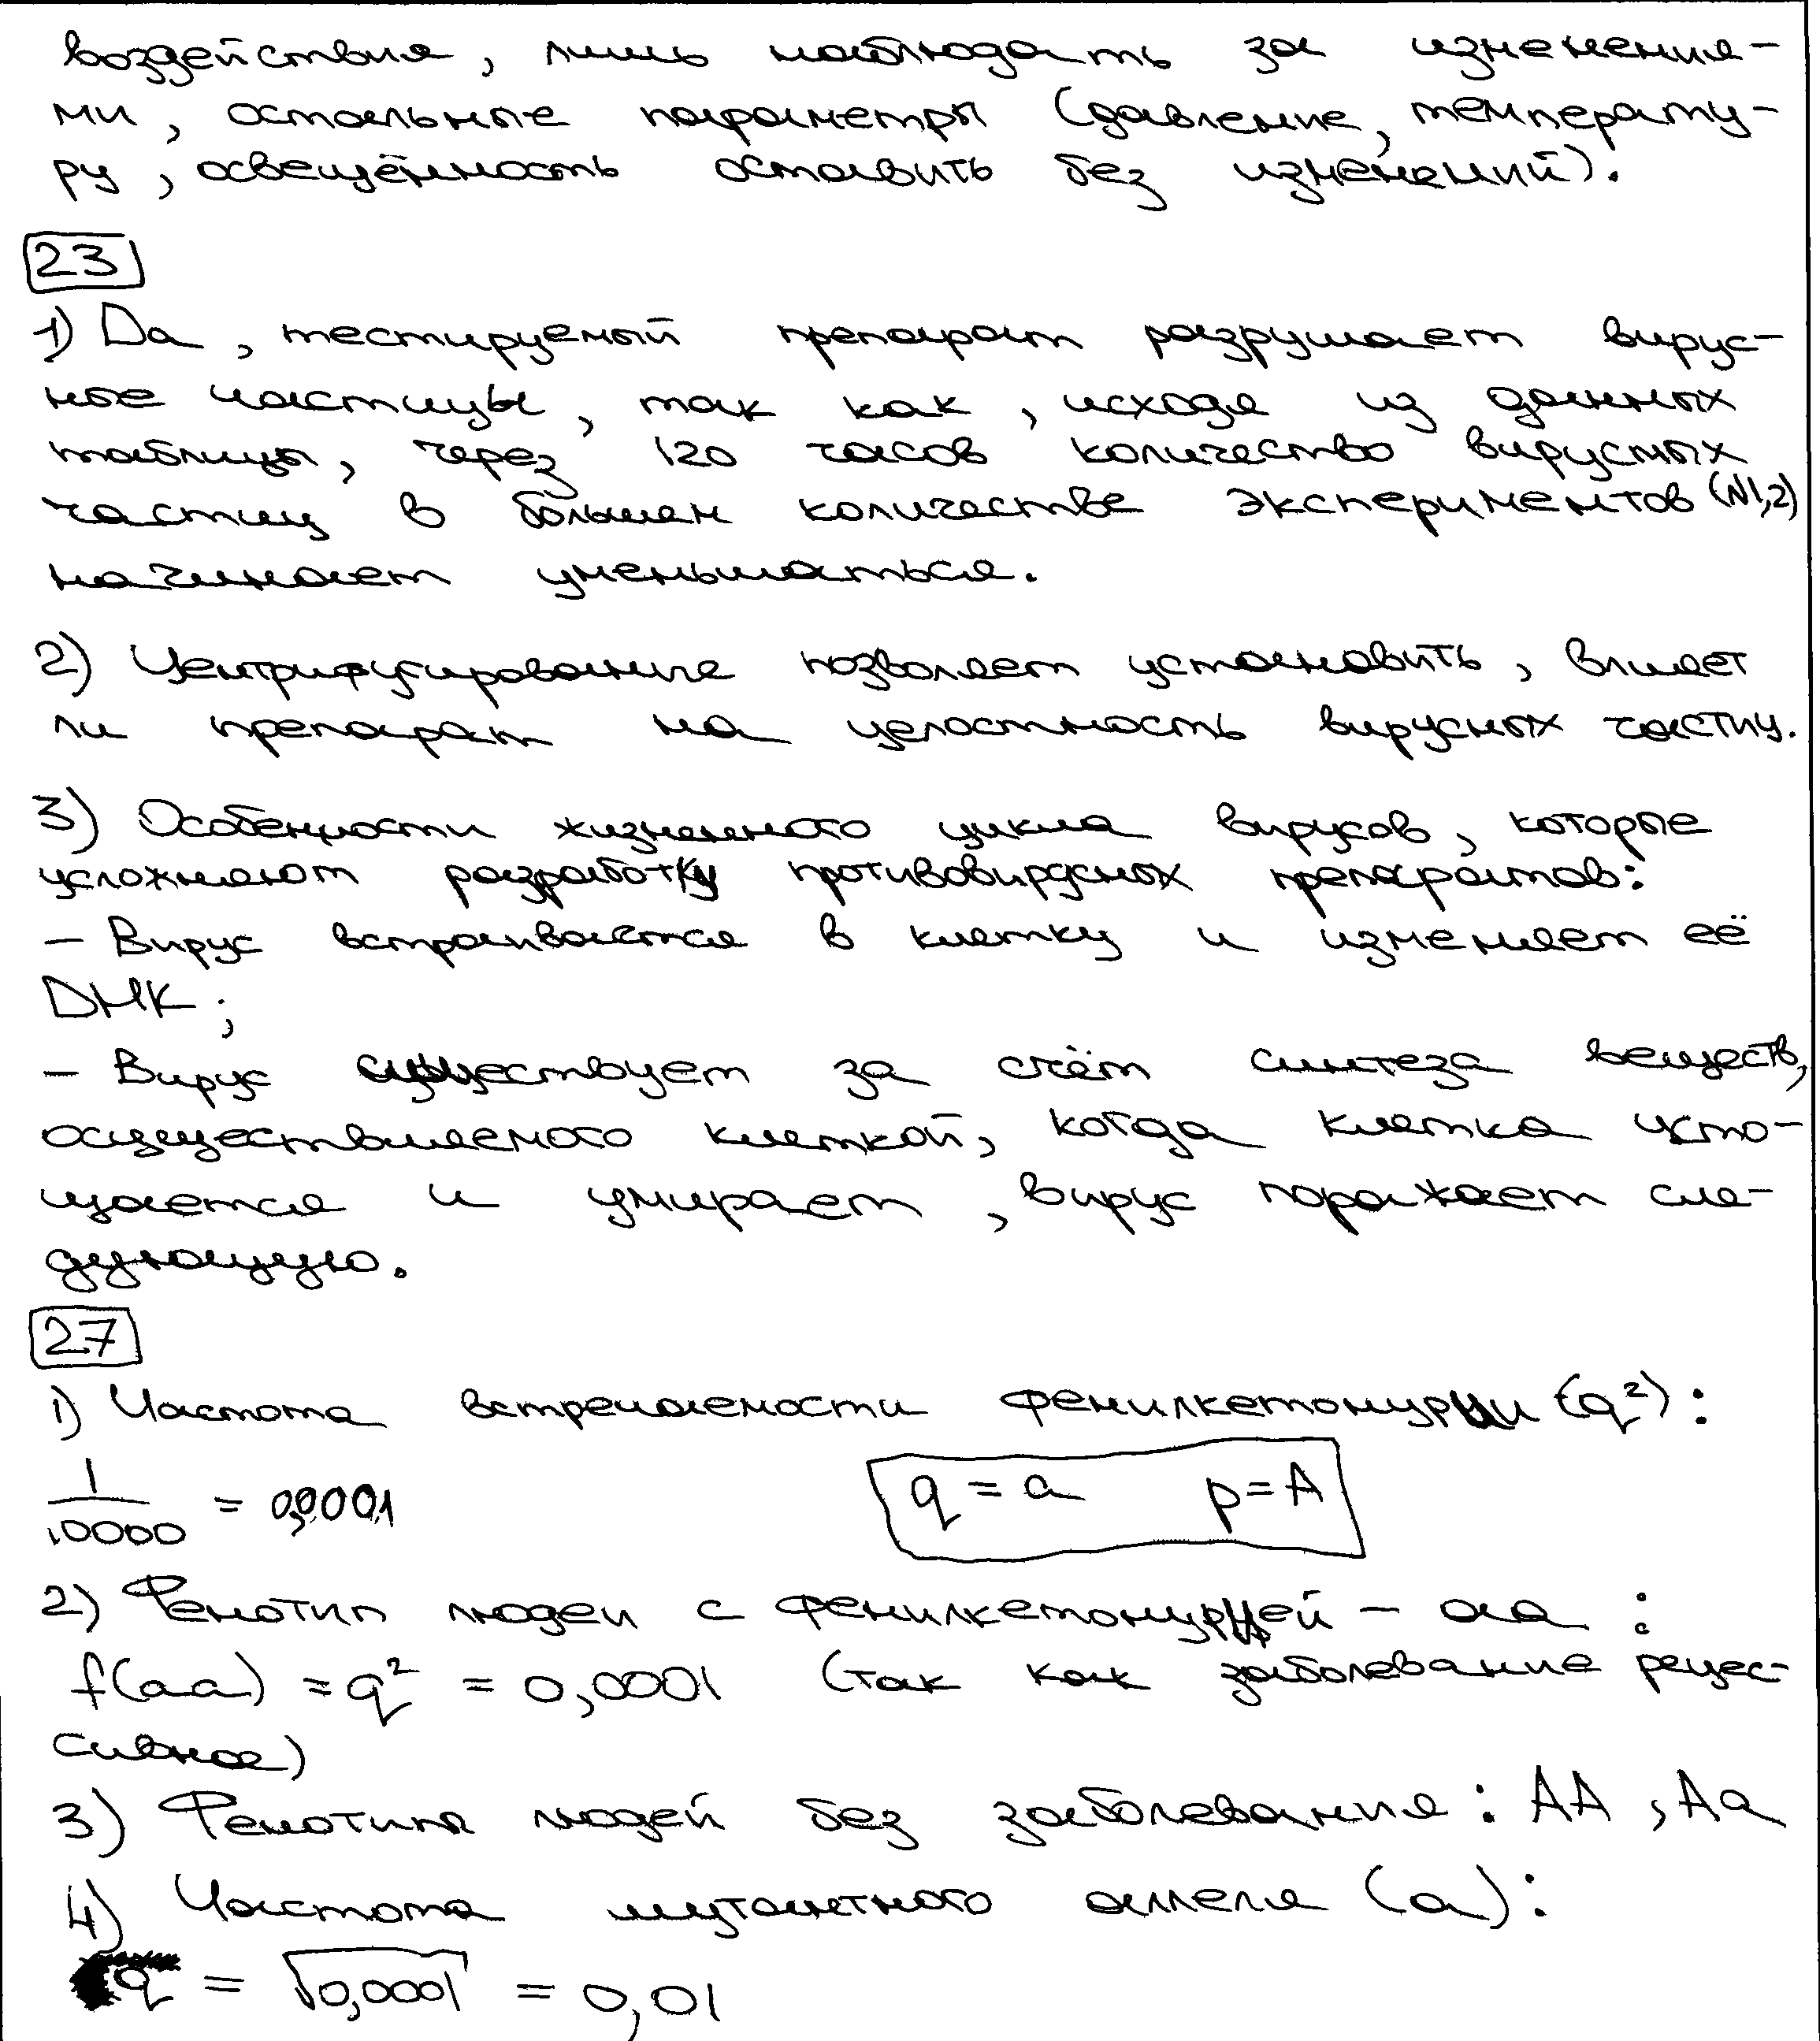 воздействия, лишь наблюдать за изменения-
ми, остальные параметры (давление, температу-
ру, освещённость оставить без изменений).
23
1) Да, тестируемый препарат разрушает вирус-
ные частицы, так как, исходя из данных
таблицы, через 120 часов количество вирусных
частиц в большем количестве экспериментов (№1,2)
начинает уменьшаться.
2) Центрифугирование позволяет установить, влияет
ли препарат на целостность вирусных частиц.
3) Особенности жизненного цикла вирусов, которые
усложняют разработку противовирусных препаратов:
– Вирус встраивается в клетку и изменяет её
ДНК;
– Вирус существует за счёт синтеза веществ,
осуществляемого клеткой, когда клетка исто-
щается и умирает, вирус поражает сле-
дующую.
27
1) Частота встречаемости фенилкетонурии (q²):
1/10000 = 0,0001
q = a p = A
2) Фенотип людей с фенилкетонурией – aa :
f(aa) = q² = 0,0001 (так как заболевание рецес-
сивное)
3) Фенотипы людей без заболевания: AA, Aa
4) Частота мутантного аллеля (a):
q = √0,0001 = 0,01